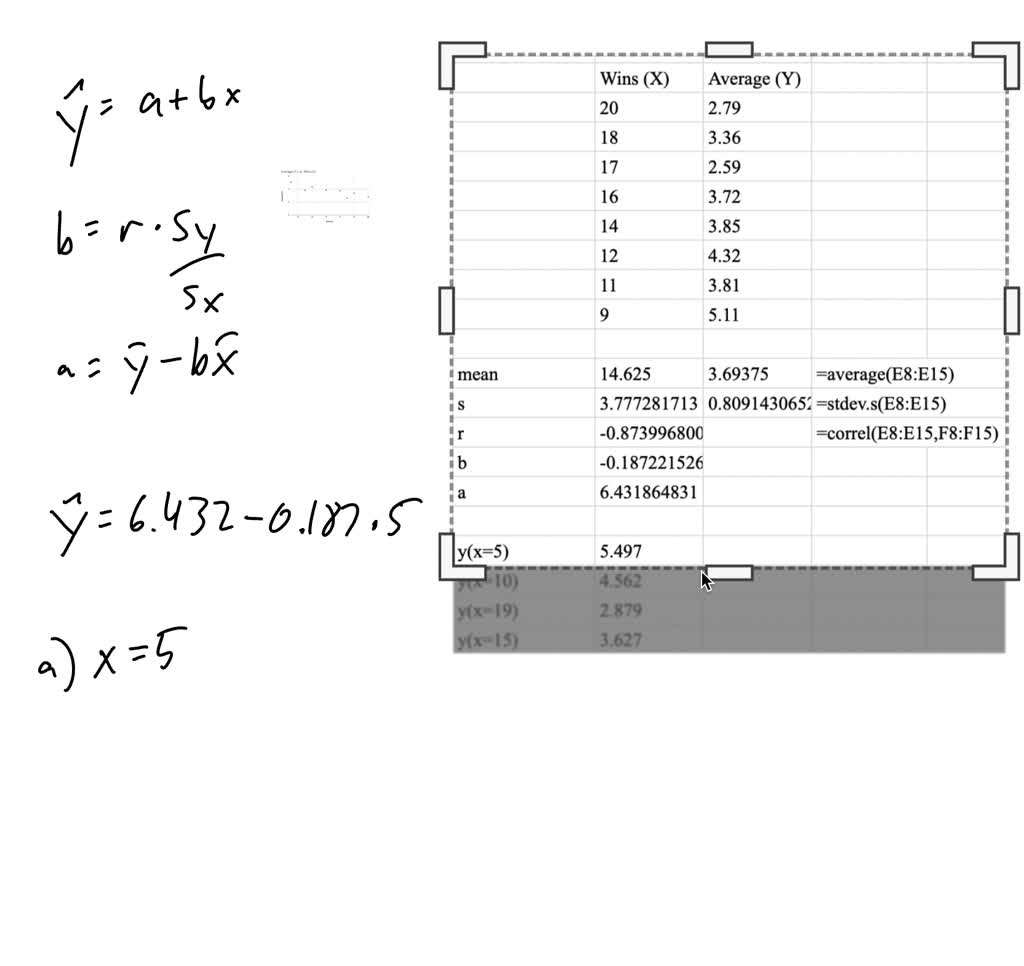 ŷ = a + bx
b = r · sy / sx
a = ȳ - bx̄
ŷ = 6.432 - 0.187 · 5
a) x = 5
Wins (X) Average (Y)
20 2.79
18 3.36
17 2.59
16 3.72
14 3.85
12 4.32
11 3.81
9 5.11
mean 14.625 3.69375 =average(E8:E15)
s 3.777281713 0.809143065 =stdev.s(E8:E15)
r -0.873996800 =correl(E8:E15,F8:F15)
b -0.187221526
a 6.431864831
y(x=5) 5.497
y(x=10) 4.562
y(x=19) 2.879
y(x=15) 3.627